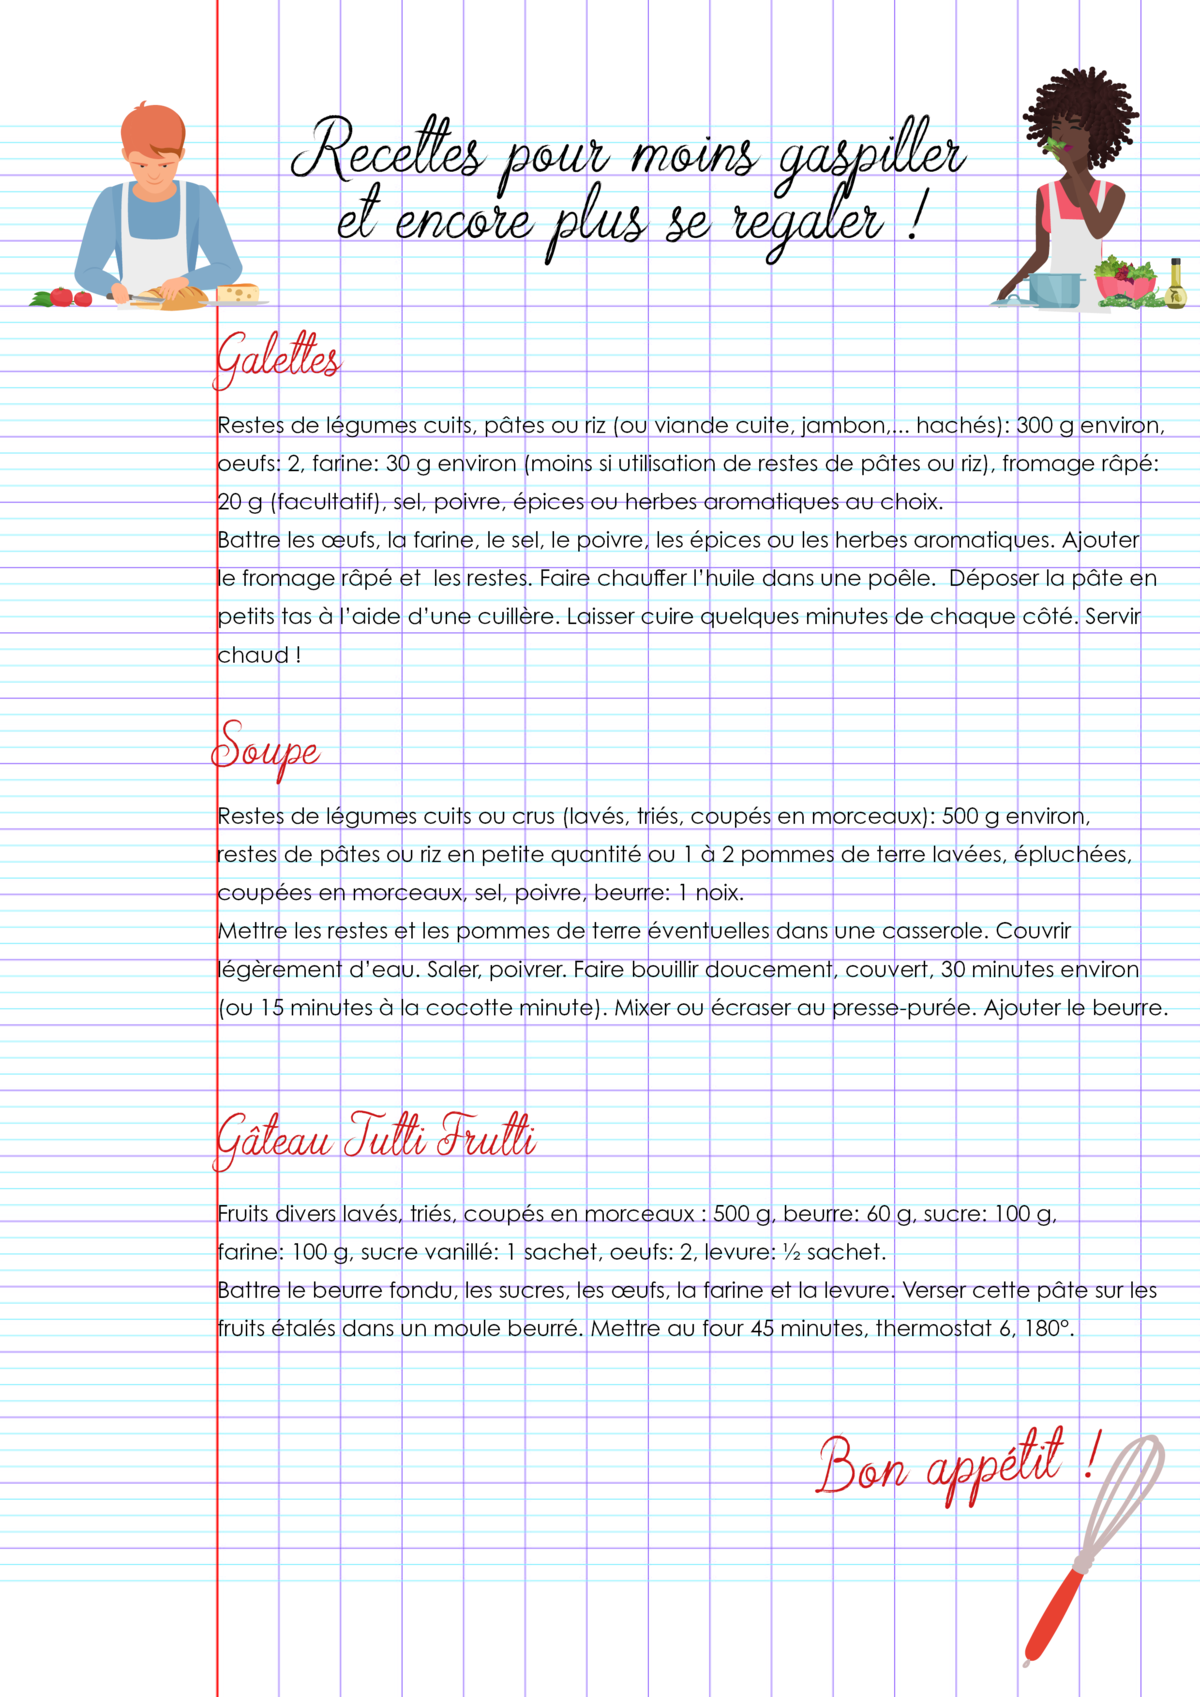 Recettes pour moins gaspiller
et encore plus se regaler !
Galettes
Restes de légumes cuits, pâtes ou riz (ou viande cuite, jambon,... hachés): 300 g environ,
oeufs: 2, farine: 30 g environ (moins si utilisation de restes de pâtes ou riz), fromage râpé:
20 g (facultatif), sel, poivre, épices ou herbes aromatiques au choix.
Battre les œufs, la farine, le sel, le poivre, les épices ou les herbes aromatiques. Ajouter
le fromage râpé et  les restes. Faire chauffer l’huile dans une poêle.  Déposer la pâte en
petits tas à l’aide d’une cuillère. Laisser cuire quelques minutes de chaque côté. Servir
chaud !
Soupe
Restes de légumes cuits ou crus (lavés, triés, coupés en morceaux): 500 g environ,
restes de pâtes ou riz en petite quantité ou 1 à 2 pommes de terre lavées, épluchées,
coupées en morceaux, sel, poivre, beurre: 1 noix.
Mettre les restes et les pommes de terre éventuelles dans une casserole. Couvrir
légèrement d’eau. Saler, poivrer. Faire bouillir doucement, couvert, 30 minutes environ
(ou 15 minutes à la cocotte minute). Mixer ou écraser au presse-purée. Ajouter le beurre.
Gâteau Tutti Frutti
Fruits divers lavés, triés, coupés en morceaux : 500 g, beurre: 60 g, sucre: 100 g,
farine: 100 g, sucre vanillé: 1 sachet, oeufs: 2, levure: ½ sachet.
Battre le beurre fondu, les sucres, les œufs, la farine et la levure. Verser cette pâte sur les
fruits étalés dans un moule beurré. Mettre au four 45 minutes, thermostat 6, 180°.
Bon appétit !